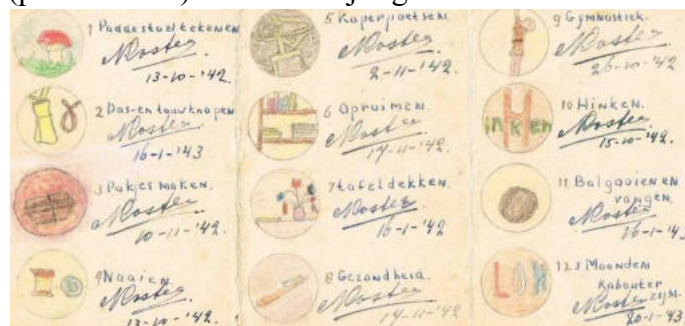 1 Paddestoel tekenen
NKoster
13-10-'42.
2 Das-en touwknopen
NKoster
16-1-'43
3 Pakjes maken.
NKoster
10-11-'42.
4 Naaien.
NKoster
13-10-'42.
5 Koperpoetsen.
NKoster
2-11-'42.
6 Opruimen.
NKoster
17-11-'42.
7 tafeldekken.
NKoster
16-1-'42.
8 Gezondheid.
NKoster
17-11-'42
9 Gymnastiek.
NKoster
26-10-'42.
10 Hinken.
HINKEN
NKoster
15-10-'42.
11 Balgooien en
vangen.
NKoster
16-1-'4
12. 3 Maanden
Kabouter
zijn.
NKoster
20-1-'43